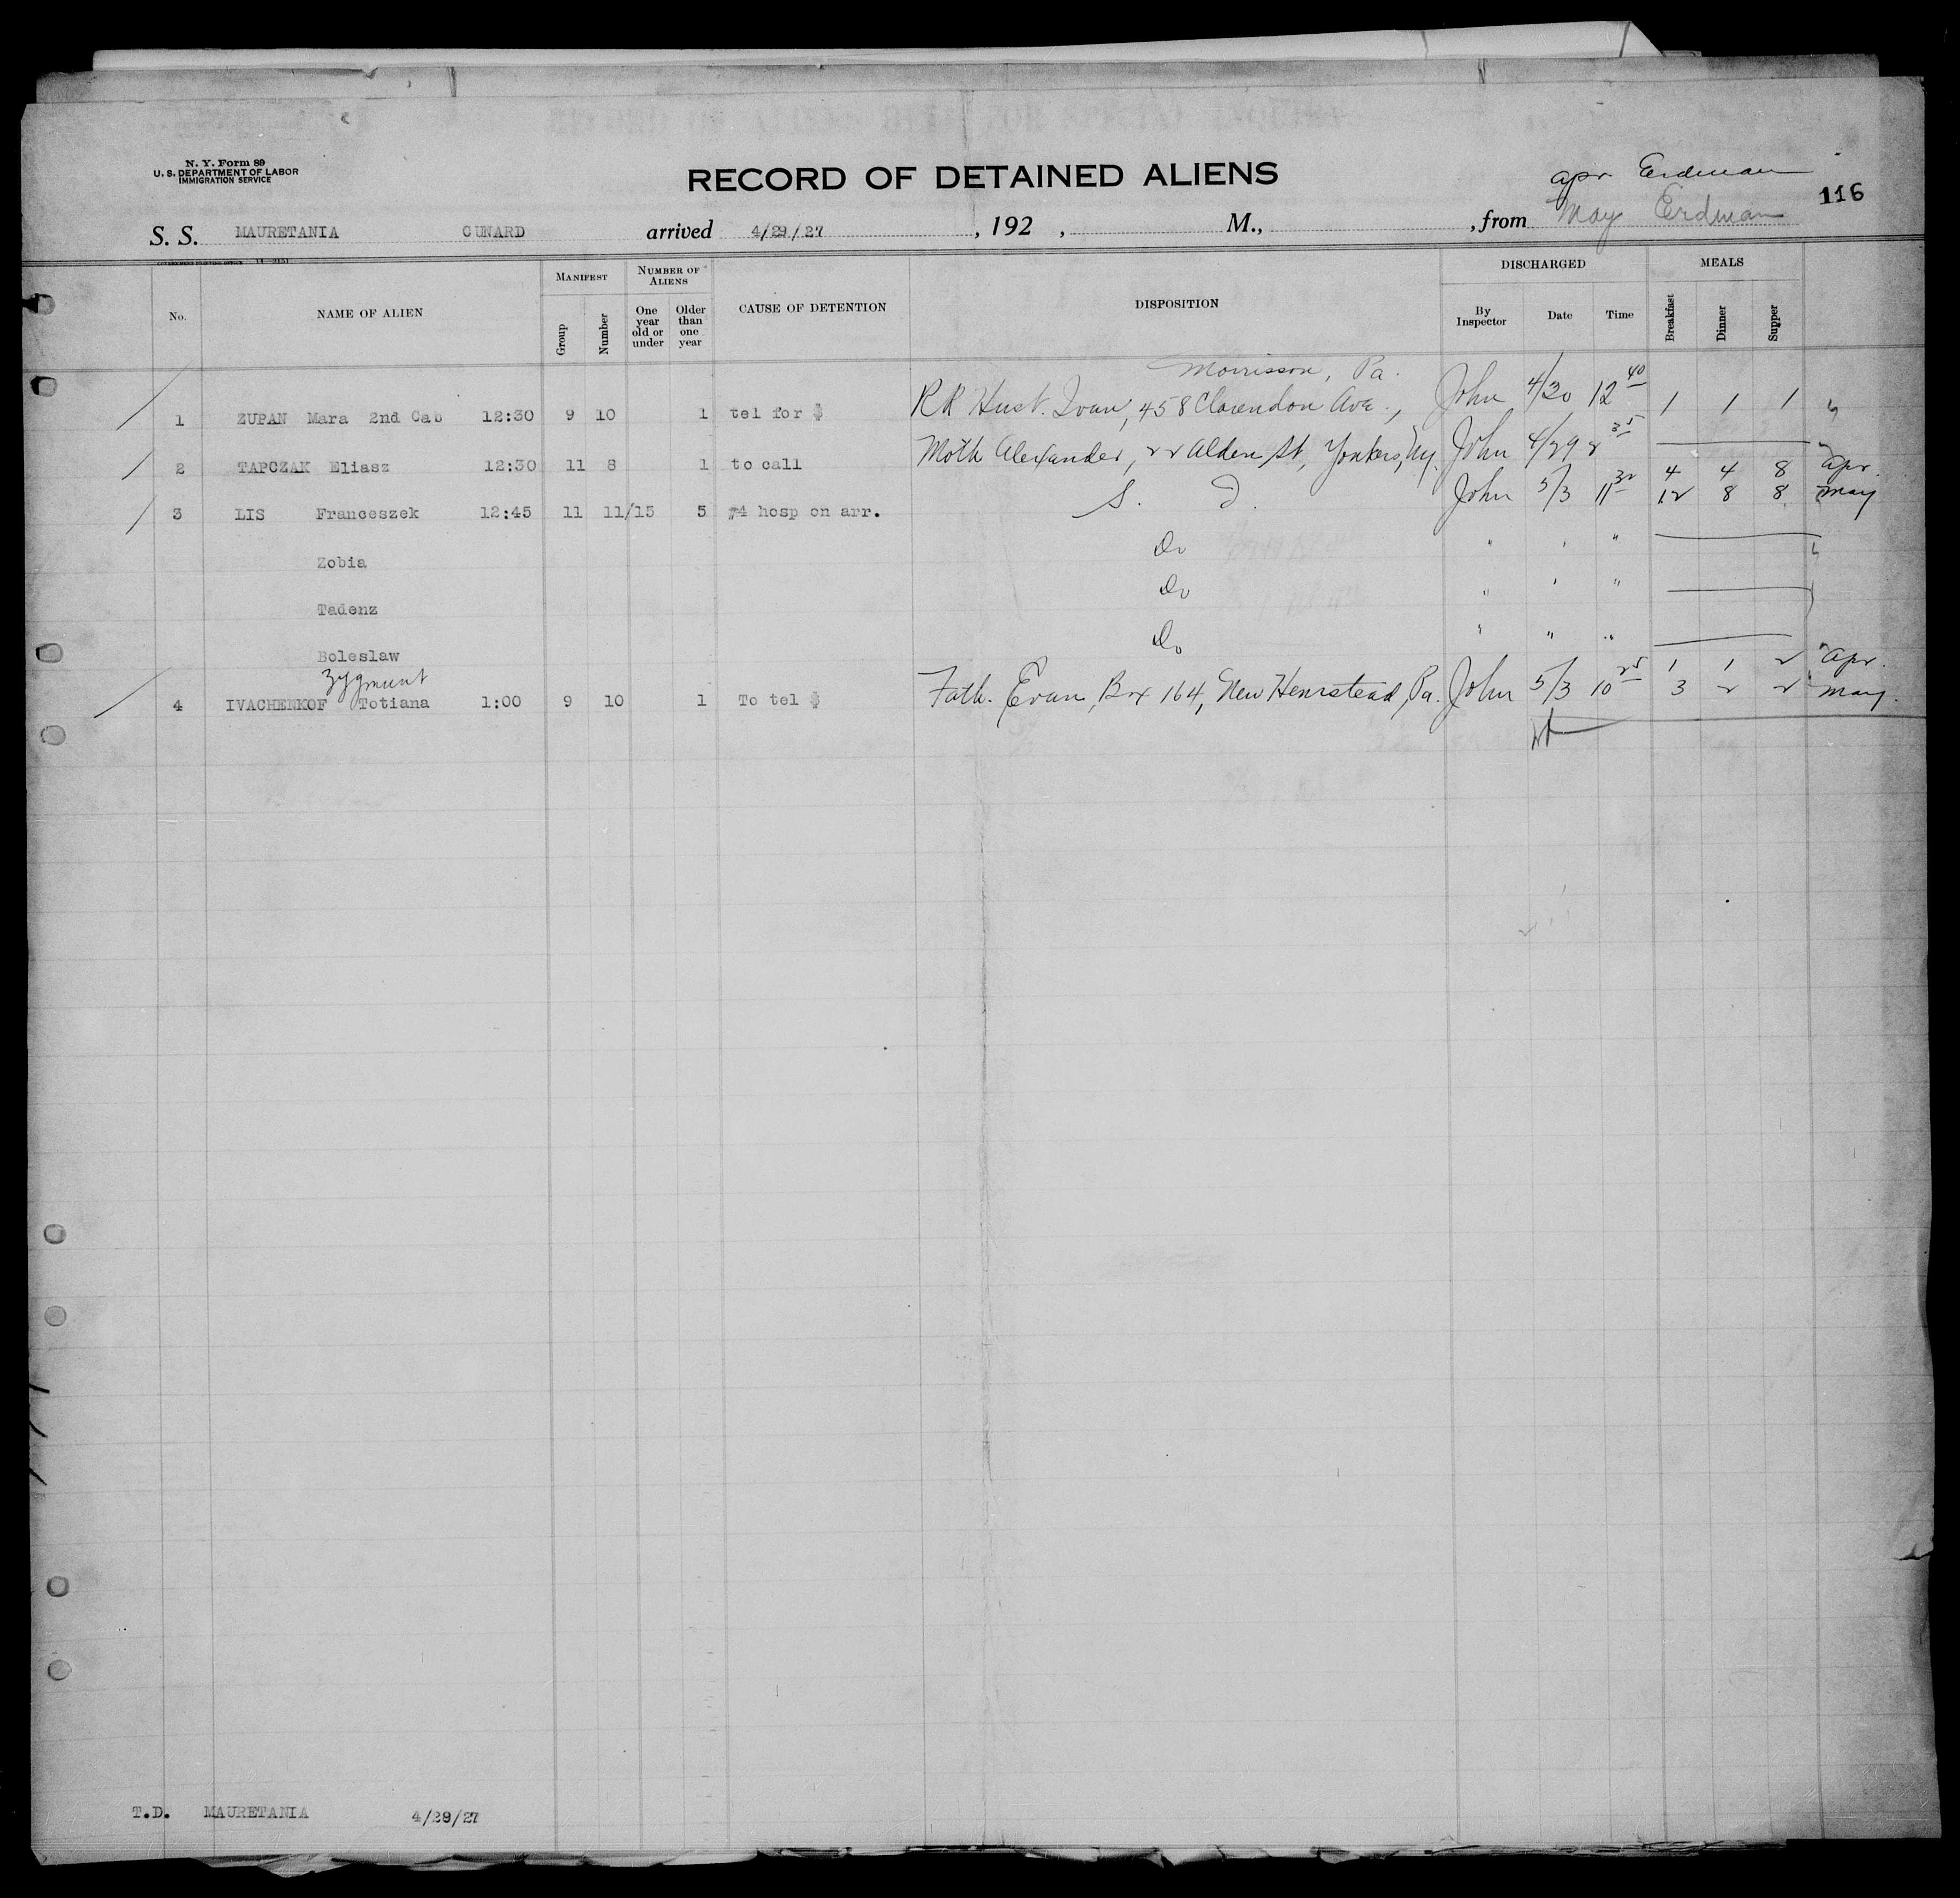 N. Y. Form 89
U. S. DEPARTMENT OF LABOR
IMMIGRATION SERVICE
RECORD OF DETAINED ALIENS
Apr Erdman
116
S. S. MAURETANIA CUNARD arrived 4/29/27, 192 , M., , from May Erdman
GOVERNMENT PRINTING OFFICE
No. NAME OF ALIEN MANIFEST Group Number NUMBER OF ALIENS One year old or under Older than one year CAUSE OF DETENTION DISPOSITION DISCHARGED By Inspector Date Time MEALS Breakfast Dinner Supper
Morrisson, Pa.
1 ZUPAN Mara 2nd Cab 12:30 9 10 1 tel for $ RR Husb. Ivan, 458 Clarendon Ave., John 4/30 12 40 1 1 1
2 TAPCZAK Eliasz 12:30 11 8 1 to call Moth Alexander, 22 Alden St, Yonkers, Ny. John 4/29 2 35
4 4 8 Apr.
3 LIS Franceszek 12:45 11 11/15 5 hosp on arr. S. D. John 5/3 11 30 12 8 8 May
Zobia Do " " "
Tadenz Do " " "
Boleslaw Do " " "
Zygmunt 1 1 2 Apr.
4 IVACHENKOF Totiana 1:00 9 10 1 To tel $ Fath. Evan, Box 164, New Henrstead, Pa. John 5/3 10 25 3 2 2 May.
T.D. MAURETANIA 4/29/27